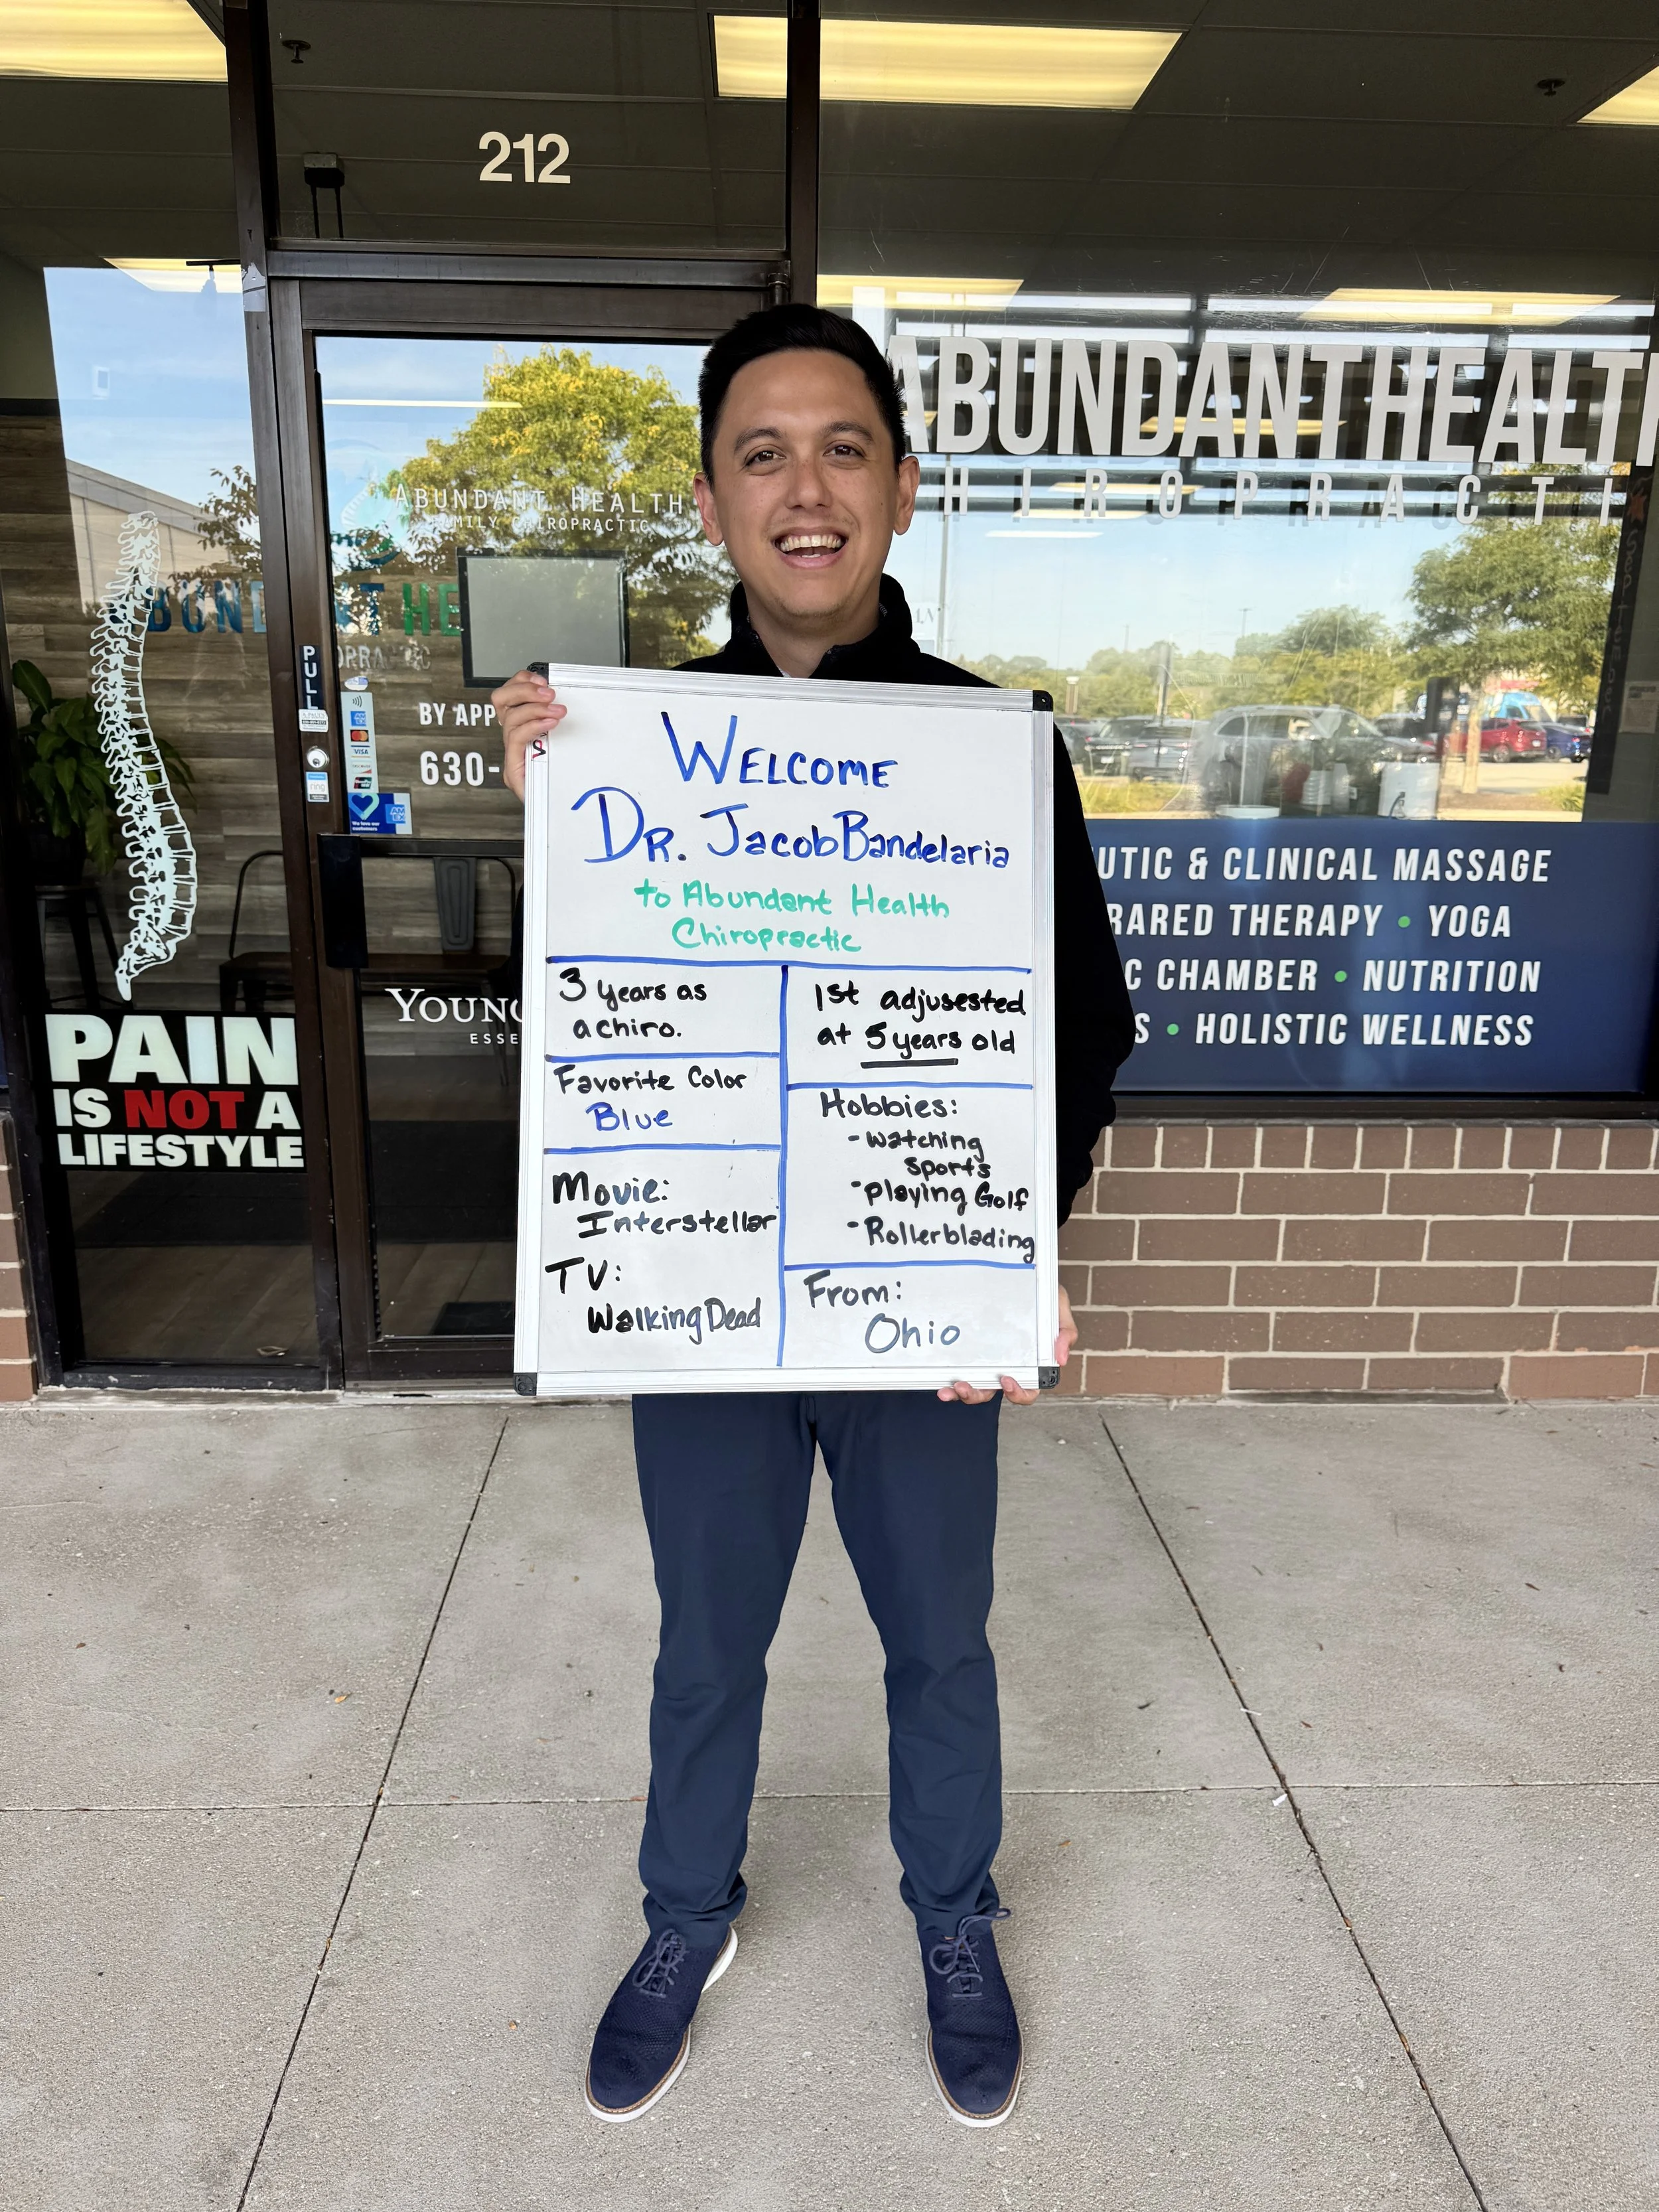 212
ABUNDANTHEALTH
HIROPRACTI
ABUNDANT HEALTH
FAMILY CHIROPRACTIC
PULL
BY APP
630-
YOUNG
ESSE
PAIN
IS NOT A
LIFESTYLE
WELCOME
DR. Jacob Bandelaria
to Abundant Health
Chiropractic
3 years as
a chiro.
Favorite Color
Blue
Movie:
Interstellar
TV:
Walking Dead
1st adjusested
at 5 years old
Hobbies:
- watching
sports
- playing Golf
- Rollerblading
From:
Ohio
UTIC & CLINICAL MASSAGE
RARED THERAPY • YOGA
C CHAMBER • NUTRITION
S • HOLISTIC WELLNESS